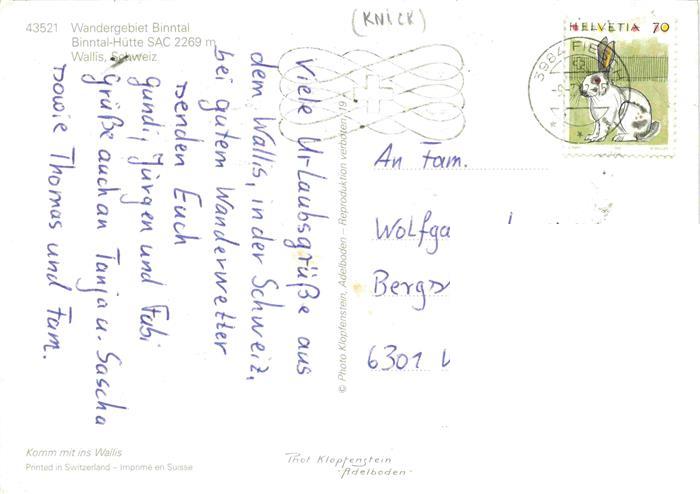 (KNICK)
43521 Wandergebiet Binntal
Binntal-Hütte SAC 2269 m
Wallis, Schweiz
HELVETIA 70
3984 FIESCH
Viele Urlaubsgrüße aus
dem Wallis, in der Schweiz,
bei gutem Wanderwetter
senden Euch
Gundi, Jürgen und Fabi
Grüße auch an Tanja u. Sascha
sowie Thomas und Fam.
© Photo Klopfenstein, Adelboden – Reproduktion verboten
An Fam.
Wolfga
Bergs
6301
Komm mit ins Wallis
Printed in Switzerland – Imprimé en Suisse
Phot Klopfenstein
-Adelboden-